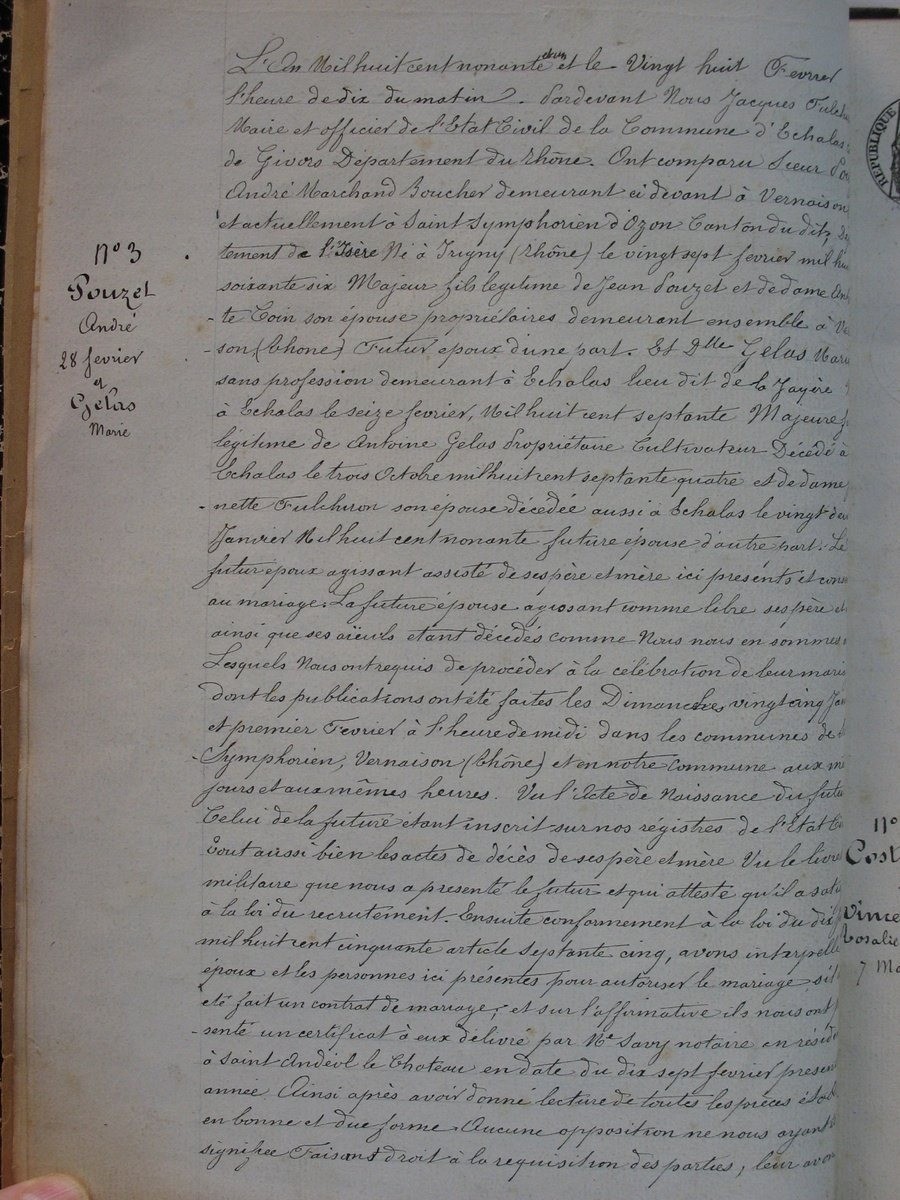 N° 3
Pouzet
André
28 fevrier
et
Gelas
Marie
L'An Mil huit cent nonante deux et le Vingt huit Fevrier
l'heure de dix du matin. Pardevant Nous Jacques Fulch
Maire et officier de l'Etat Civil de la Commune d'Echalas
de Givors Département du Rhône. Ont comparu Sieur Pou
André Marchand Boucher demeurant ci devant à Vernaison
et actuellement à Saint Symphorien d'Ozon Canton du dit, Dép
tement de l'Isère Né à Irigny (Rhône) le vingt sept fevrier mil hui
soixante six Majeur fils legitime de Jean Pouzet et de dame Ant
-te Coin son épouse propriétaires demeurant ensemble à Ver
-son (Rhone) Futur epoux d'une part. Et Dlle Gelas Marie
sans profession demeurant à Echalas lieu dit de la Jayère
à Echalas le seize fevrier, Mil huit cent septante Majeure f
légitime de Antoine Gelas Propriétaire Cultivateur Décédé à
Echalas le trois Octobre mil huit cent septante quatre et de dame
-nette Fulchiron son épouse décédée aussi à Echalas le vingt deu
Janvier Mil huit cent nonante future épouse d'autre part. Le
futur epoux agissant assisté de ses père et mère ici présents et conse
au mariage. La future épouse agissant comme libre ses père et
ainsi que ses aïeuls etant décédés comme Nous nous en sommes
Lesquels Nous ont requis de procéder à la célébration de leur maria
dont les publications ont été faites les Dimanches vingt cinq Jan
et premier Fevrier à l'heure de midi dans les communes de S
-Symphorien, Vernaison (Rhône) et en notre commune aux mê
jours et aux mêmes heures. Vu l'Acte de Naissance du futu
Celui de la future étant inscrit sur nos régistres de l'Etat Ci
Tout aussi bien les actes de décès de ses père et mère Vu le livre
militaire que nous a presenté le futur et qui atteste qu'il a sati
à la loi du recrutement. Ensuite conformement à la loi du dix
mil huit cent cinquante article septante cinq, avons interpellé
époux et les personnes ici présentes pour autoriser le mariage, s'il
eté fait un contrat de mariage, et sur l'affirmative ils nous ont p
-senté un certificat à eux délivré par Me Savy notaire en réside
à Saint Andéol le Chateau en date du dix sept fevrier presen
année. Ainsi après avoir donné lecture de toutes les pièces
en bonne et due forme. Aucune opposition ne nous ayant
signifiée Faisant droit à la requisition des parties, leur avon
REPUBLIQUE
N°
Cost
Vince
Rosalie
7 Ma